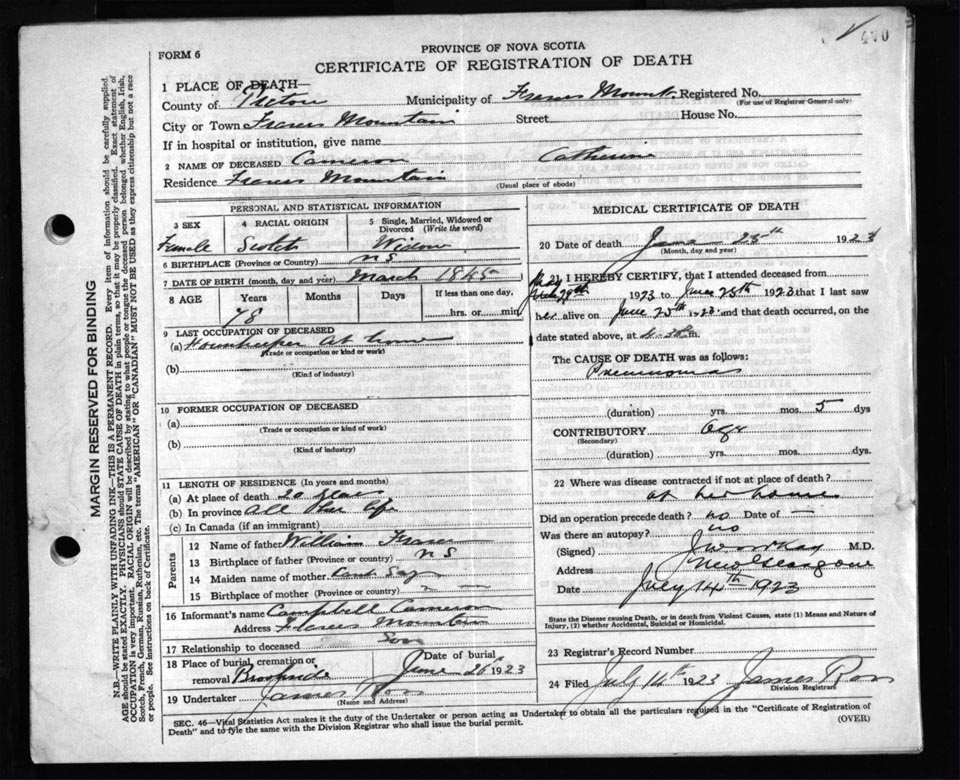 FORM 6
PROVINCE OF NOVA SCOTIA
CERTIFICATE OF REGISTRATION OF DEATH
MARGIN RESERVED FOR BINDING
N.B.—WRITE PLAINLY WITH UNFADING INK—THIS IS A PERMANENT RECORD. Every item of information should be carefully supplied.
AGE should be stated EXACTLY. PHYSICIANS should STATE CAUSE OF DEATH in plain terms, so that it may be properly classified. Exact statement of
OCCUPATION is very important. RACIAL ORIGIN will be described by stating to what people or tongue the deceased person belonged whether English, Irish,
Scotch, French, German, Russian, Ruthenian, etc. The terms "AMERICAN" OR "CANADIAN" MUST NOT BE USED as they express citizenship but not a race
or people. See instructions on back of Certificate.
1 PLACE OF DEATH—
County of Pictou Municipality of Frasers Mount. Registered No.
(For use of Registrar General only)
City or Town Frasers Mountain Street House No.
If in hospital or institution, give name
2 NAME OF DECEASED Cameron Catherine
Residence Frasers Mountain
(Usual place of abode)
PERSONAL AND STATISTICAL INFORMATION
3 SEX 4 RACIAL ORIGIN 5 Single, Married, Widowed or Divorced (Write the word)
Female Scotch Widow
6 BIRTHPLACE (Province or Country) N S
7 DATE OF BIRTH (month, day and year) March 1845
8 AGE Years Months Days If less than one day,
78 hrs. or min.
9 LAST OCCUPATION OF DECEASED
(a) Housekeeper At home
(Trade or occupation or kind or work)
(b)
(Kind of industry)
10 FORMER OCCUPATION OF DECEASED
(a)
(Trade or occupation or kind of work)
(b)
(Kind of industry)
11 LENGTH OF RESIDENCE (In years and months)
(a) At place of death 20
(b) In province All life
(c) In Canada (if an immigrant)
Parents
12 Name of father William Fraser
13 Birthplace of father (Province or country) N S
14 Maiden name of mother
15 Birthplace of mother (Province or country)
16 Informant's name Campbell Cameron
Address Frasers Mountain
17 Relationship to deceased Son
18 Place of burial, cremation or Date of burial
removal June 26 1923
19 Undertaker James Ross
(Name and Address)
MEDICAL CERTIFICATE OF DEATH
20 Date of death June 25th 1923
(Month, day and year)
21 I HEREBY CERTIFY, that I attended deceased from
1923 to June 25th 1923 that I last saw
her alive on June 25th 1923 and that death occurred, on the
date stated above, at m.
The CAUSE OF DEATH was as follows:
Pneumonia
(duration) yrs. mos. 5 dys
CONTRIBUTORY Age
(Secondary)
(duration) yrs. mos. dys.
22 Where was disease contracted if not at place of death?
at her home
Did an operation precede death? no Date of —
Was there an autopsy? no
(Signed) M.D.
Address New Glasgow
Date July 14th 1923
State the Disease causing Death, or in death from Violent Causes, state (1) Means and Nature of
Injury, (2) whether Accidental, Suicidal or Homicidal.
23 Registrar's Record Number
24 Filed July 14th 1923 James Ross
Division Registrar
SEC. 46—Vital Statistics Act makes it the duty of the Undertaker or person acting as Undertaker to obtain all the particulars required in the "Certificate of Registration of
Death" and to fyle the same with the Division Registrar who shall issue the burial permit. (OVER)